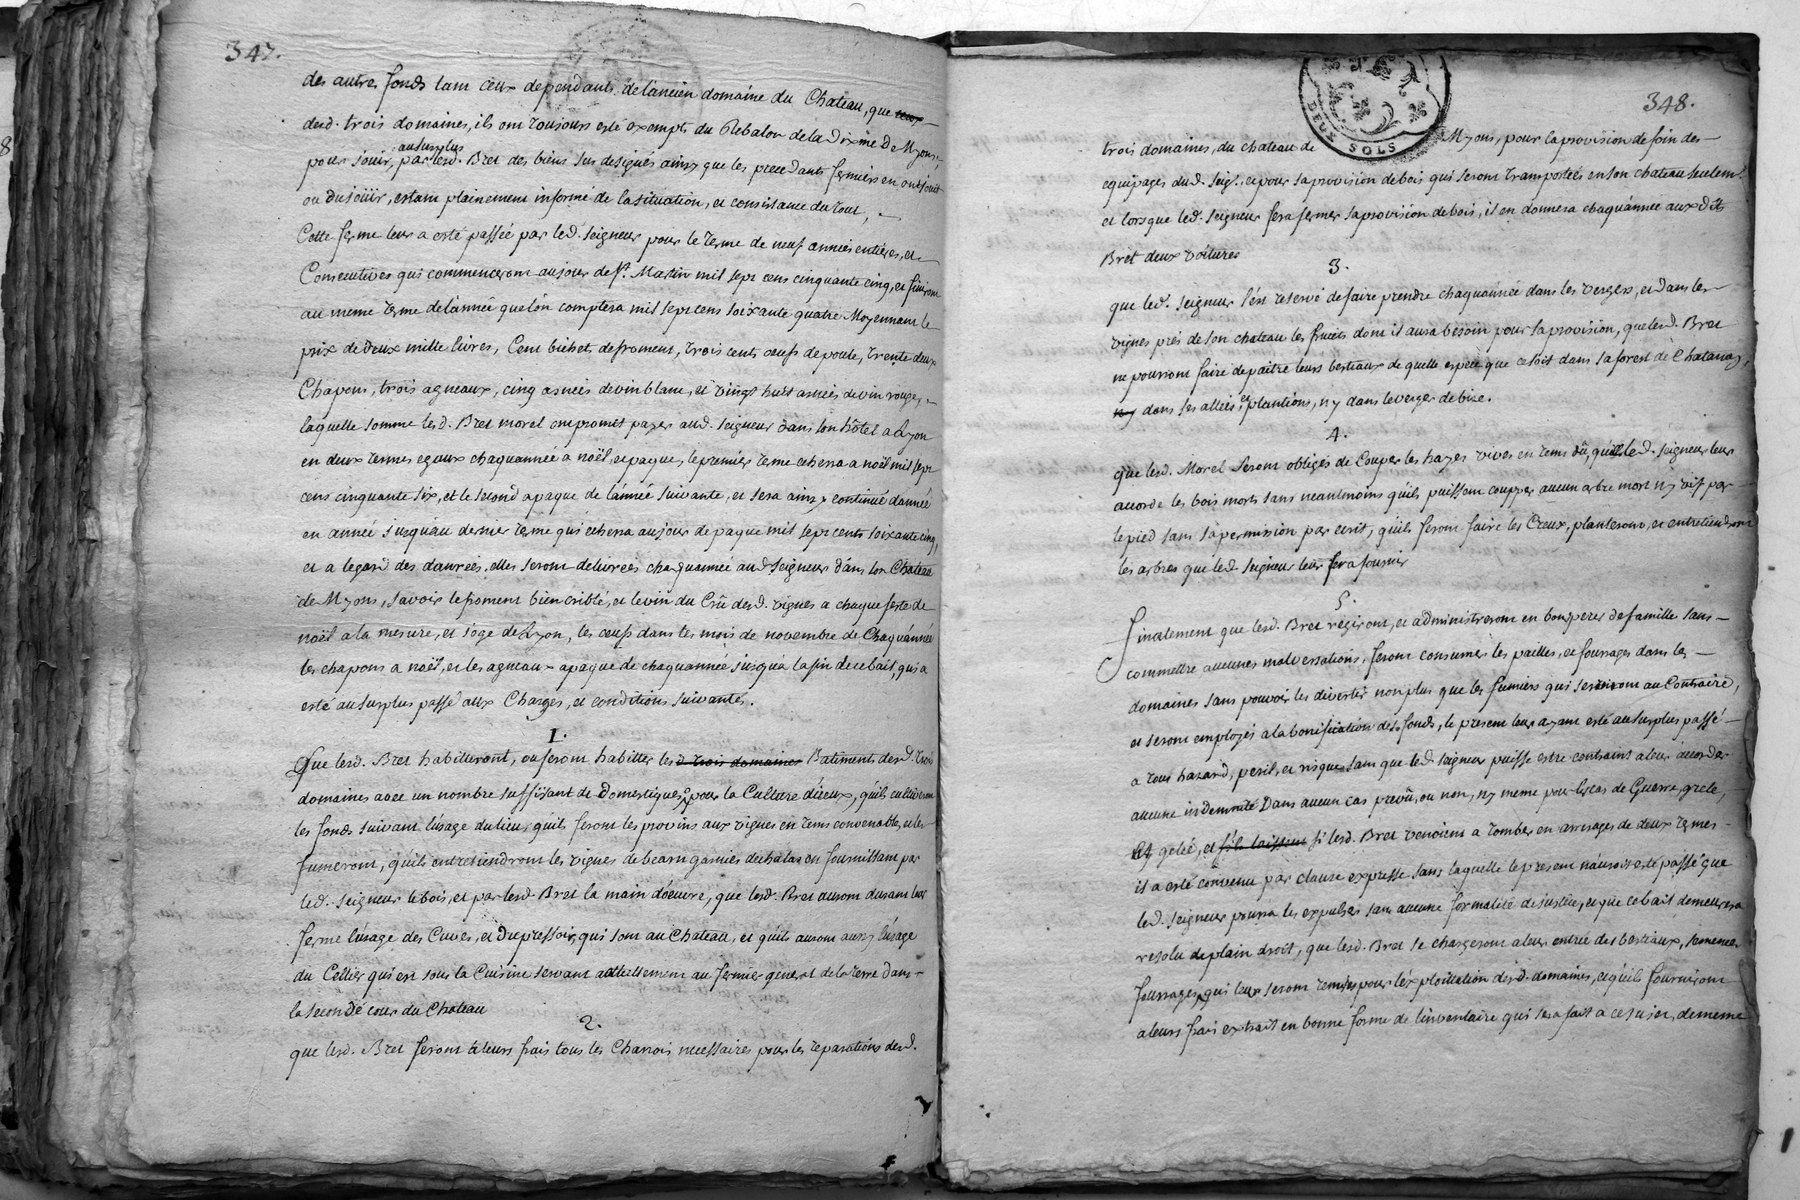 347.
des autres fonds tant ceux dependants de lancien domaine du Chateau, que ceux
desd. trois domaines, ils ont toujours esté exempts du Rebalon de la Dixme de Myons.
au surplus
pour jouir, par lesd. Bret des biens sus designés ainsy que les precedants fermiers en ont joüit
ou dujoüir, estant plainement informé de la situation, et consistance du tout,
Cette ferme leur a esté passée par led. seigneur pour le terme de neuf années entieres, et
Consecutives qui commenceront au jour de St. Martin mil sept cens cinquante cinq, et finiront
au meme terme de l'année que l'on comptera mil sept cens soixante quatre Moyennant le
prix de Deux mille livres, Cent bichets de froment, trois cents oeufs de poule, trente deux
Chapons, trois agneaux, cinq asnées de vin blanc, et vingt huit asnées de vin rouge,
laquelle somme lesd. Bret morel ont promit payer aud. seigneur dans son hôtel a Lyon
en deux termes egaux chaquannée a noël, et paque, le premier terme echerra a noël mil sept
cens cinquante six, et le second a paque de l'année suivante, et sera ainsy continué d'année
en année jusqu'au dernier terme qui echerra au jour de paque mil sept cents soixante cinq,
et a legard des danrées, elles seront delivrées chaquannée aud seigneur dans son Chateau
de Myons, savoir le froment bien criblé, et le vin du Crû desd. vignes a chaque feste de
noël a la mesure, et joge de Lyon, les oeufs dans les mois de novembre de Chaquánnée
les chapons a noël, et les agneau a paque de chaquannée jusqu'a la fin de ce bait, qui a
esté au surplus passé aux Charges, et conditions suivantes.
1.
Que lesd. Bret habitteront, ou feront habitter lesd trois domaines Batiments desd. trois
domaines avec un nombre suffisant de Domestiques pour la Culture d'iceux, qu'ils cultiveront
les fonds suivant l'usage du lieu, qu'ils feront les provins aux vignes en tems convenable, et les
fumeront, qu'ils entretiendront les vignes debearn garnies dechalas en fournissant par
led. seigneur le bois, et par lesd Bret la main d'oeuvre, que lesd. Bret auront durant leur
ferme l'usage des Cuves, et Du pressoir qui sont au Chateau, et qu'ils auront aussy l'usage
du Cellier qui est sous la Cuisine servant actuellement au fermier general de la terre dans
la seconde cour du Chateau
2.
que lesd. Bret feront à leurs frais tous les Charrois necessaires pour les reparations desd.
DEUX SOLS
348.
trois domaines, du chateau de Myons, pour la provision de foin des
equipages dud. seigr. et pour sa provision de bois qui seront transportées en son chateau seulemt.
et lorsque led. seigneur fera fermer sa provision de bois, il en donnera chaquánnée aux dits
Bret deux voitures
3.
que led. seigneur s'est reservé de faire prendre chaquannée dans les vergers, et dans les
vignes prés de son chateau les fruits dont il aura besoin pour sa provision, que lesd. Bret
ne pourront faire depaitre leurs bestiaux de quelle espece que ce soit dans sa forest de Chatanay,
ny dans ses allées et plantions, ny dans le verger de bize.
4.
que lesd. Morel seront obligés de Couper les hayes vives en tems dû, que led. seigneur leur
accorde les bois morts sans neantmoins qu'ils puissent coupper aucun arbre mort ny vif par
le pied sans sa permission par ecrit, qu'ils feront faire les Creux, planteront, et entretiendront
les arbres que led. seigneur leur fera fournir
5.
finalement que lesd. Bret regiront, et administreront en bons peres de famille sans
commettre aucunes malversations, feront consumer les pailles, et fourrages dans les
domaines sans pouvoir les divertir non plus que les fumiers qui serviront au Contraire,
et seront employés a la bonification desd. fonds, le present leur ayant esté au surplus passé
a tous hazard, peril, et risque sans que led. seigneur puisse estre contraint a leur accorder
aucune indemnité Dans aucun cas prevû, ou non, ny meme pour les cas de Guerre, grele,
et gelée, et s'ils laissent si lesd. Bret venoient a tomber en arrerages de deux termes
il a esté convenu par clause expresse sans laquelle le present n'auroit esté passé que
led. seigneur pourra les expulser sans aucune formalité de justice, et que ce bait demeurera
resolu de plain droit, que lesd. Bret se chargeront a leur entrée des bestiaux, semences
fourrages, qui leur seront remises pour l'exploitation desd. domaines, et qu'ils fourniront
a leurs frais extrait en bonne forme de l'inventaire qui sera fait a ce sujet, de meme